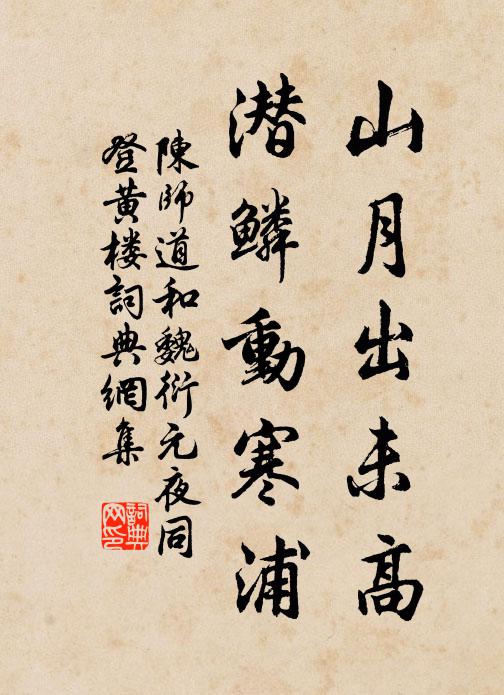 山月出未高
潜鳞動寒浦
陳師道和魏衍元夜同
登黄楼詞典網集
詞典网印